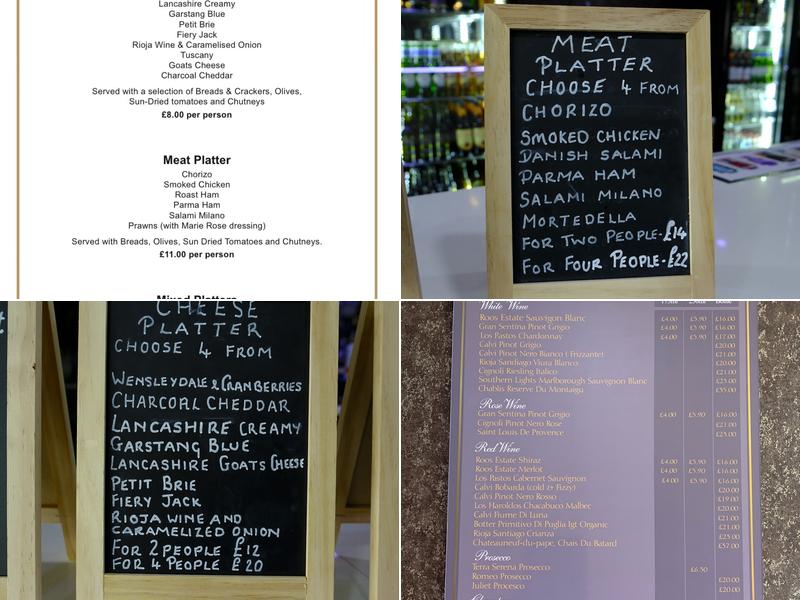 Lancashire Creamy
Garstang Blue
Petit Brie
Fiery Jack
Rioja Wine & Caramelised Onion
Tuscany
Goats Cheese
Charcoal Cheddar
Served with a selection of Breads & Crackers, Olives,
Sun-Dried tomatoes and Chutneys
£8.00 per person
Meat Platter
Chorizo
Smoked Chicken
Roast Ham
Parma Ham
Salami Milano
Prawns (with Marie Rose dressing)
Served with Breads, Olives, Sun Dried Tomatoes and Chutneys.
£11.00 per person
Mixed Platters
MEAT
PLATTER
CHOOSE 4 FROM
CHORIZO
SMOKED CHICKEN
DANISH SALAMI
PARMA HAM
SALAMI MILANO
MORTEDELLA
FOR TWO PEOPLE-£14
FOR FOUR PEOPLE-£22
CHEESE
PLATTER
CHOOSE 4 FROM
WENSLEYDALE & CRANBERRIES
CHARCOAL CHEDDAR
LANCASHIRE CREAMY
GARSTANG BLUE
LANCASHIRE GOATS CHEESE
PETIT BRIE
FIERY JACK
RIOJA WINE AND
CARAMELIZED ONION
FOR 2 PEOPLE £12
FOR 4 PEOPLE £20
White Wine
Roos Estate Sauvignon Blanc £4.00 £5.90 £16.00
Gran Sentina Pinot Grigio £4.00 £5.90 £16.00
Los Pastos Chardonnay £4.00 £5.90 £17.00
Calvi Pinot Grigio £20.00
Calvi Pinot Nero Bianco ( Frizzante) £21.00
Rioja Sandiago Viura Blanco £21.00
Cignoli Riesling Italico £21.00
Southern Lights Marlborough Sauvignon Blanc £25.00
Chablis Reserve Du Montaigu £35.00
Rose Wine
Gran Sentina Pinot Grigio £4.00 £5.90 £16.00
Cignoli Pinot Nero Rose £21.00
Saint Louis De Provence £25.00
Red Wine
Roos Estate Shiraz £4.00 £5.90 £16.00
Roos Estate Merlot £4.00 £5.90 £16.00
Los Pastos Cabernet Sauvignon £4.00 £5.90 £16.00
Calvi Bobarda (cold & Fizzy) £20.00
Calvi Pinot Nero Rosso £19.00
Los Haroldos Chacabuco Malbec £20.00
Calvi Fiume Di Luna £21.00
Botter Primitivo Di Puglia Igt Organic £21.00
Rioja Santiago Crianza £25.00
Chateauneuf-du-pape, Chais Du Batard £57.00
Prosecco
Terra Serena Prosecco £6.50
Romeo Prosecco £20.00
Juliet Procesco £20.00